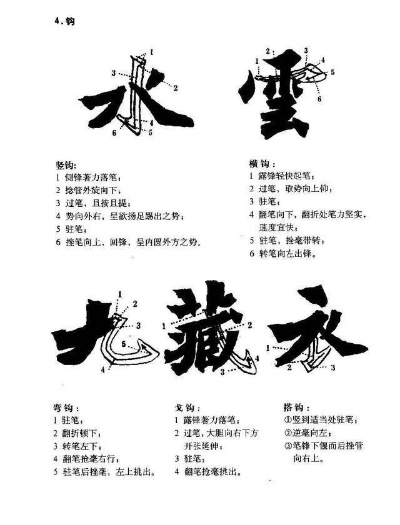 4.钩
水 雲
1 2 3 4 5 6
1 2 3 4 5 6
竖钩:
1 侧锋著力落笔;
2 捻管外旋向下,
3 过笔,且按且提;
4 势向外右,呈欲扬足踢出之势;
5 驻笔;
6 挫笔向上,回锋,呈内圆外方之势。
横钩:
1 露锋轻快起笔;
2 过笔,取势向上仰;
3 驻笔;
4 翻笔向下,翻折处笔力坚实,
速度宜快;
5 驻笔,挫毫带转;
6 转笔向左出锋。
九 藏 永
1 2 3 4 5
1 2 3 4
1 2 3
弯钩:
1 驻笔;
2 翻折顿下;
3 转笔左下;
4 翻笔抢毫右行;
5 驻笔后挫毫,左上挑出。
戈钩:
1 露锋著力落笔;
2 过笔,大胆向右下方
开张延伸;
3 驻笔;
4 翻笔抢毫挑出。
搭钩:
①竖到适当处驻笔;
②逆毫向左;
③笔锋下偃而后挫管
向右上。